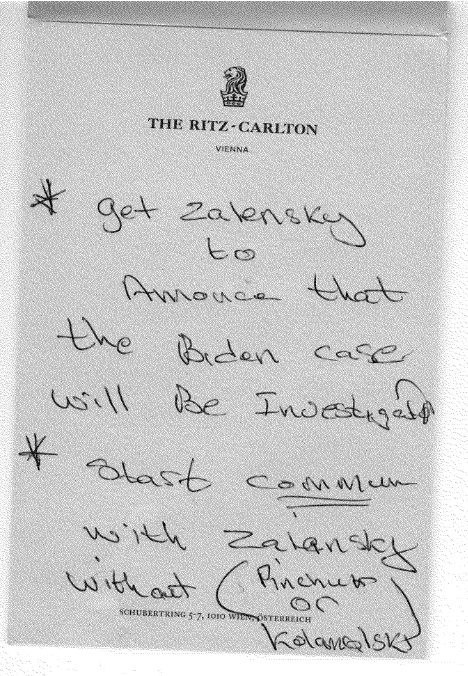 THE RITZ-CARLTON
VIENNA
* get Zalensky
to
Annouce that
the Biden case
will Be Investigated
* Start commun
with Zalansky
without (Pinchuk
or
SCHUBERTRING 5-7, 1010 WIEN, ÖSTERREICH
Kolamolski)